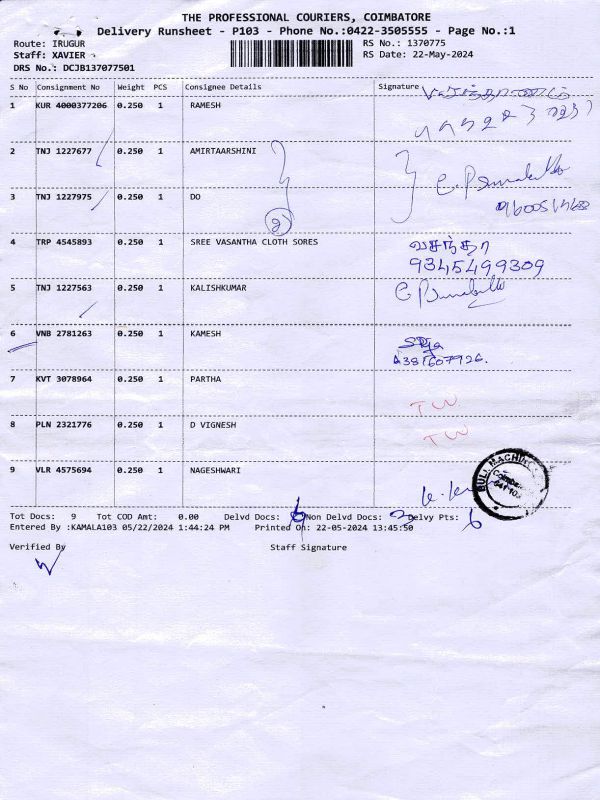 THE PROFESSIONAL COURIERS, COIMBATORE
Delivery Runsheet - P103 - Phone No.:0422-3505555 - Page No.:1
Route: IRUGUR
RS No.: 1370775
Staff: XAVIER
RS Date: 22-May-2024
DRS No.: DCJB137077501
S No Consignment No Weight PCS Consignee Details Signature
1 KUR 4000377206 0.250 1 RAMESH
2 TNJ 1227677 0.250 1 AMIRTAARSHINI
3 TNJ 1227975 0.250 1 DO
2
4 TRP 4545893 0.250 1 SREE VASANTHA CLOTH SORES வசந்தா
9345499309
5 TNJ 1227563 0.250 1 KALISHKUMAR
6 VNB 2781263 0.250 1 KAMESH
7 KVT 3078964 0.250 1 PARTHA TW
8 PLN 2321776 0.250 1 D VIGNESH TW
9 VLR 4575694 0.250 1 NAGESHWARI
BULL MACHIN
Tot Docs: 9 Tot COD Amt: 0.00 Delvd Docs: 6 Non Delvd Docs: 2 Delvy Pts: 6
Entered By :KAMALA103 05/22/2024 1:44:24 PM Printed On: 22-05-2024 13:45:50
Verified By Staff Signature